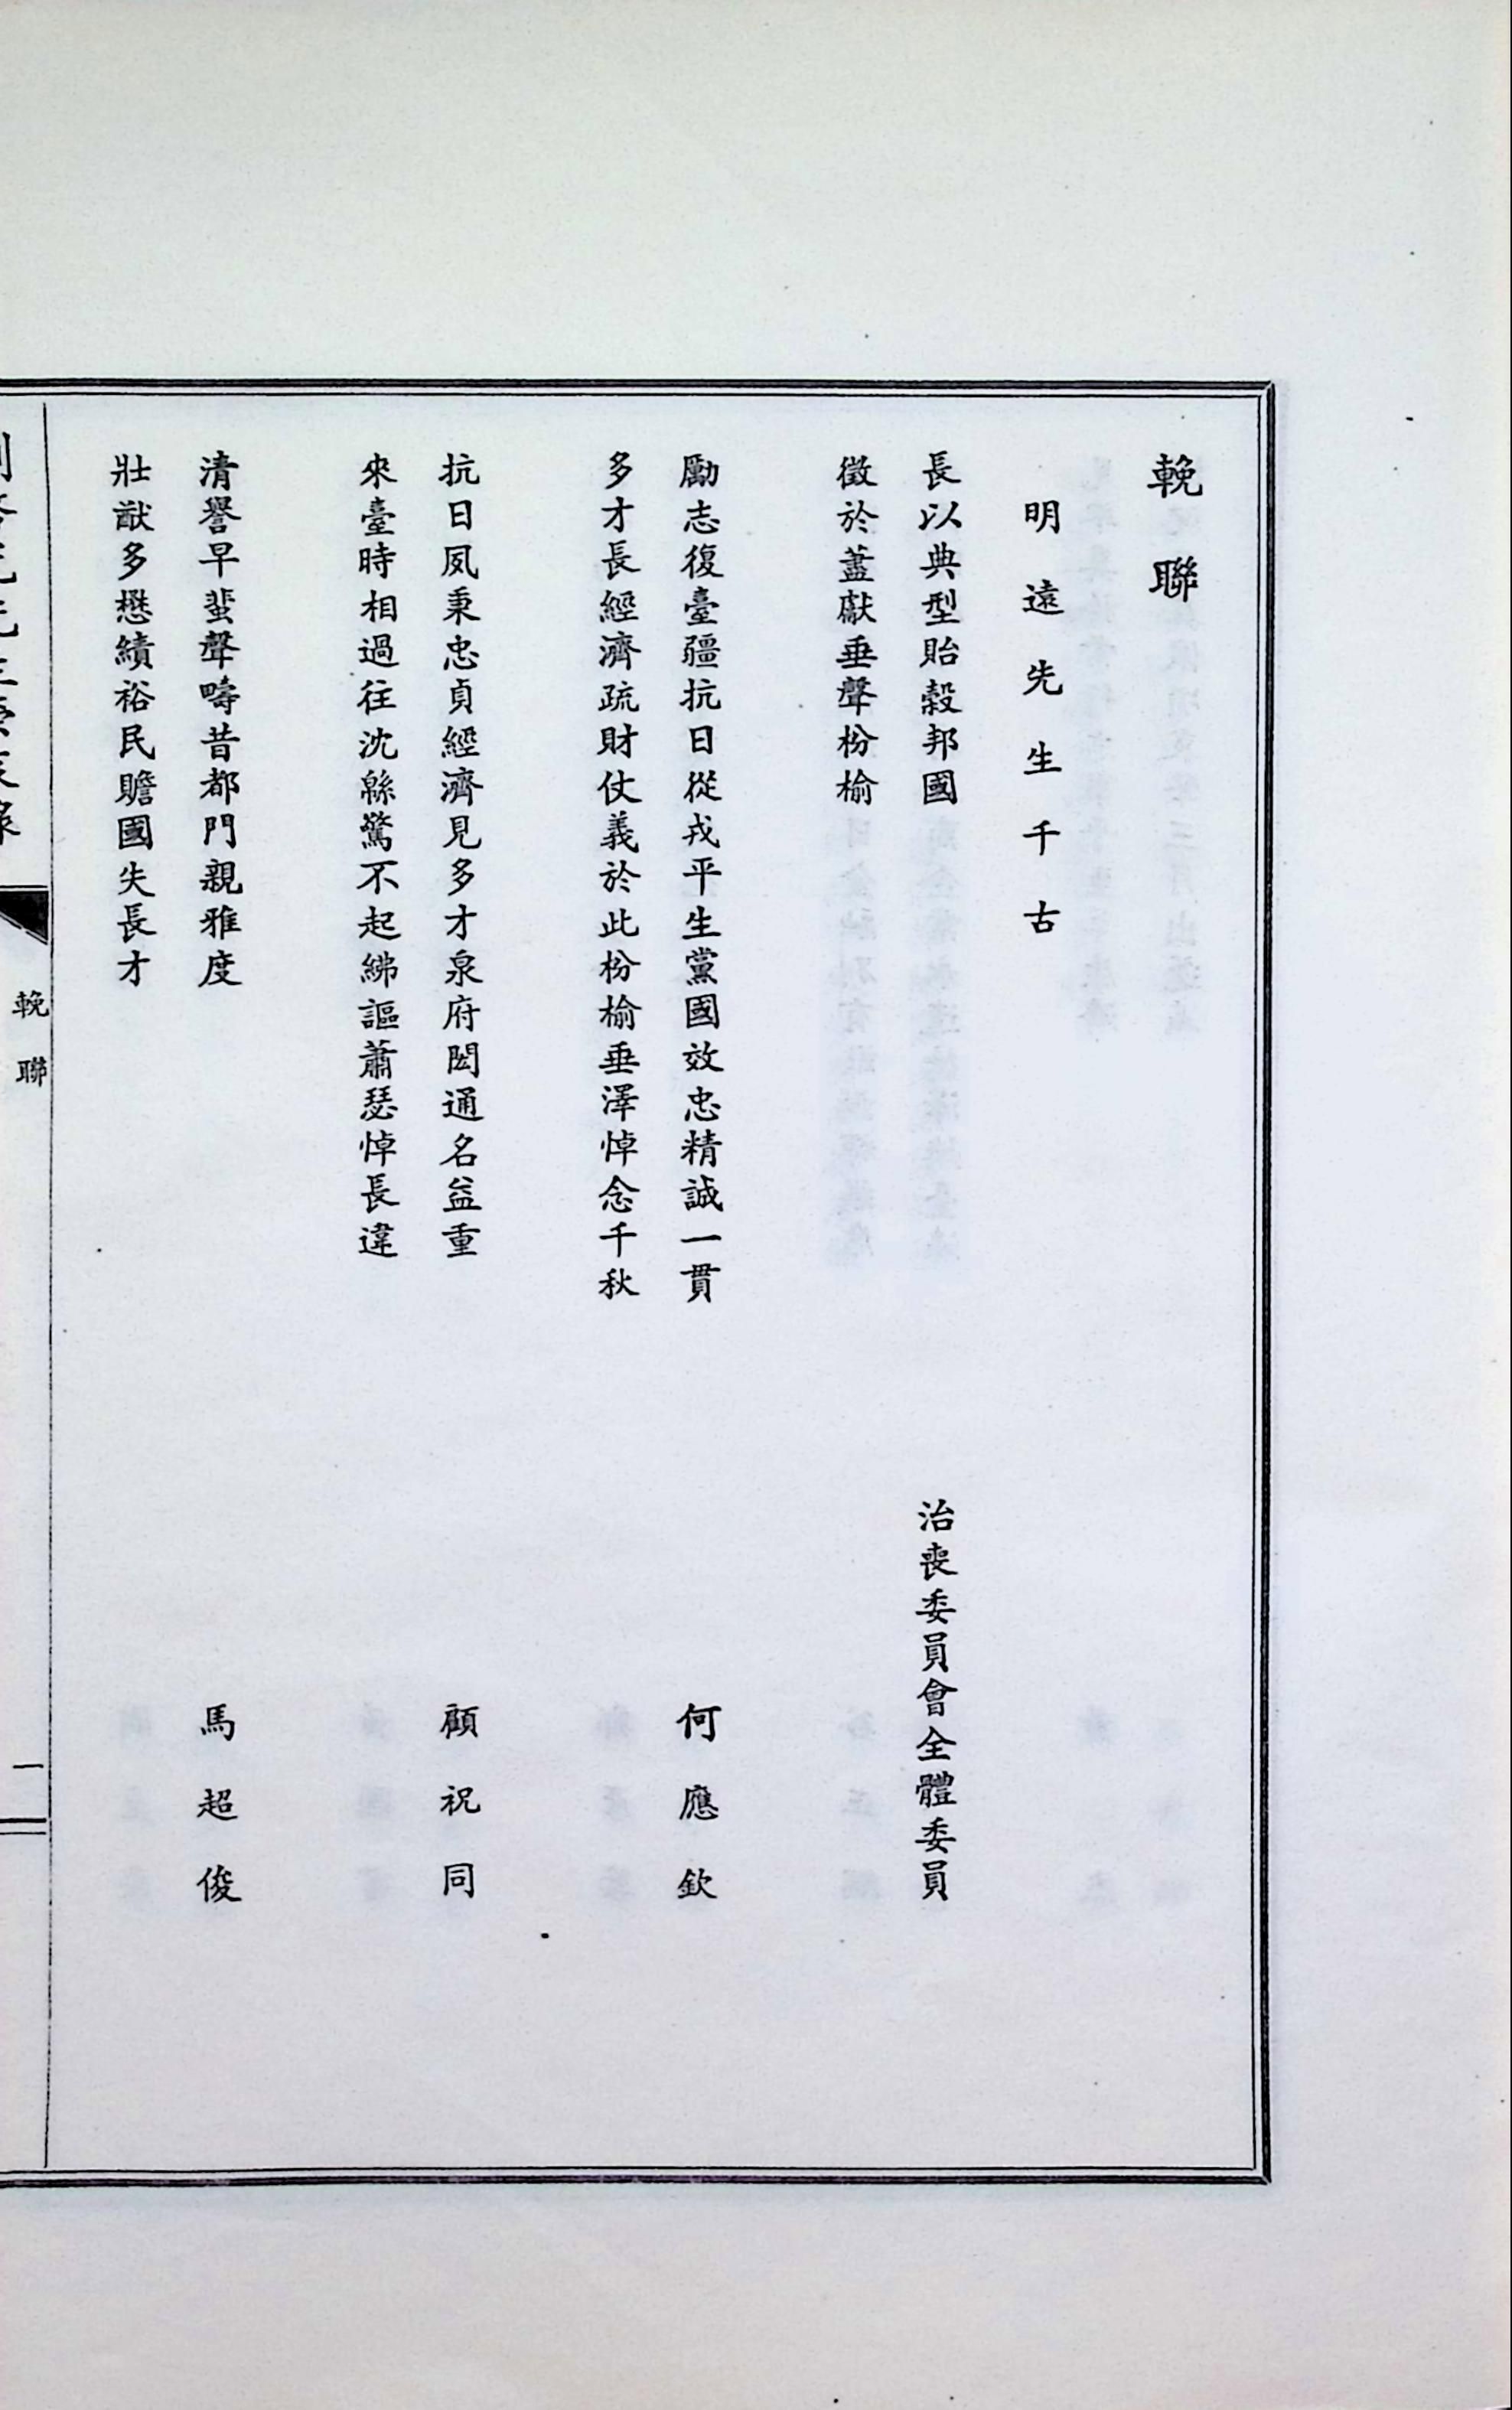 輓聯
明遠先生千古
長以典型貽穀邦國
治喪委員會全體委員
徵於藎獻垂聲枌榆
勵志復臺疆抗日從戎平生黨國效忠精誠一貫
何應欽
多才長經濟疏財仗義於此枌榆垂澤悼念千秋
抗日夙秉忠貞經濟見多才泉府閎通名益重
顧祝同
來臺時相過往沈緜驚不起紼謳蕭瑟悼長違
清譽早蜚聲疇昔都門親雅度
馬超俊
壯猷多懋績裕民贍國失長才
輓聯
一